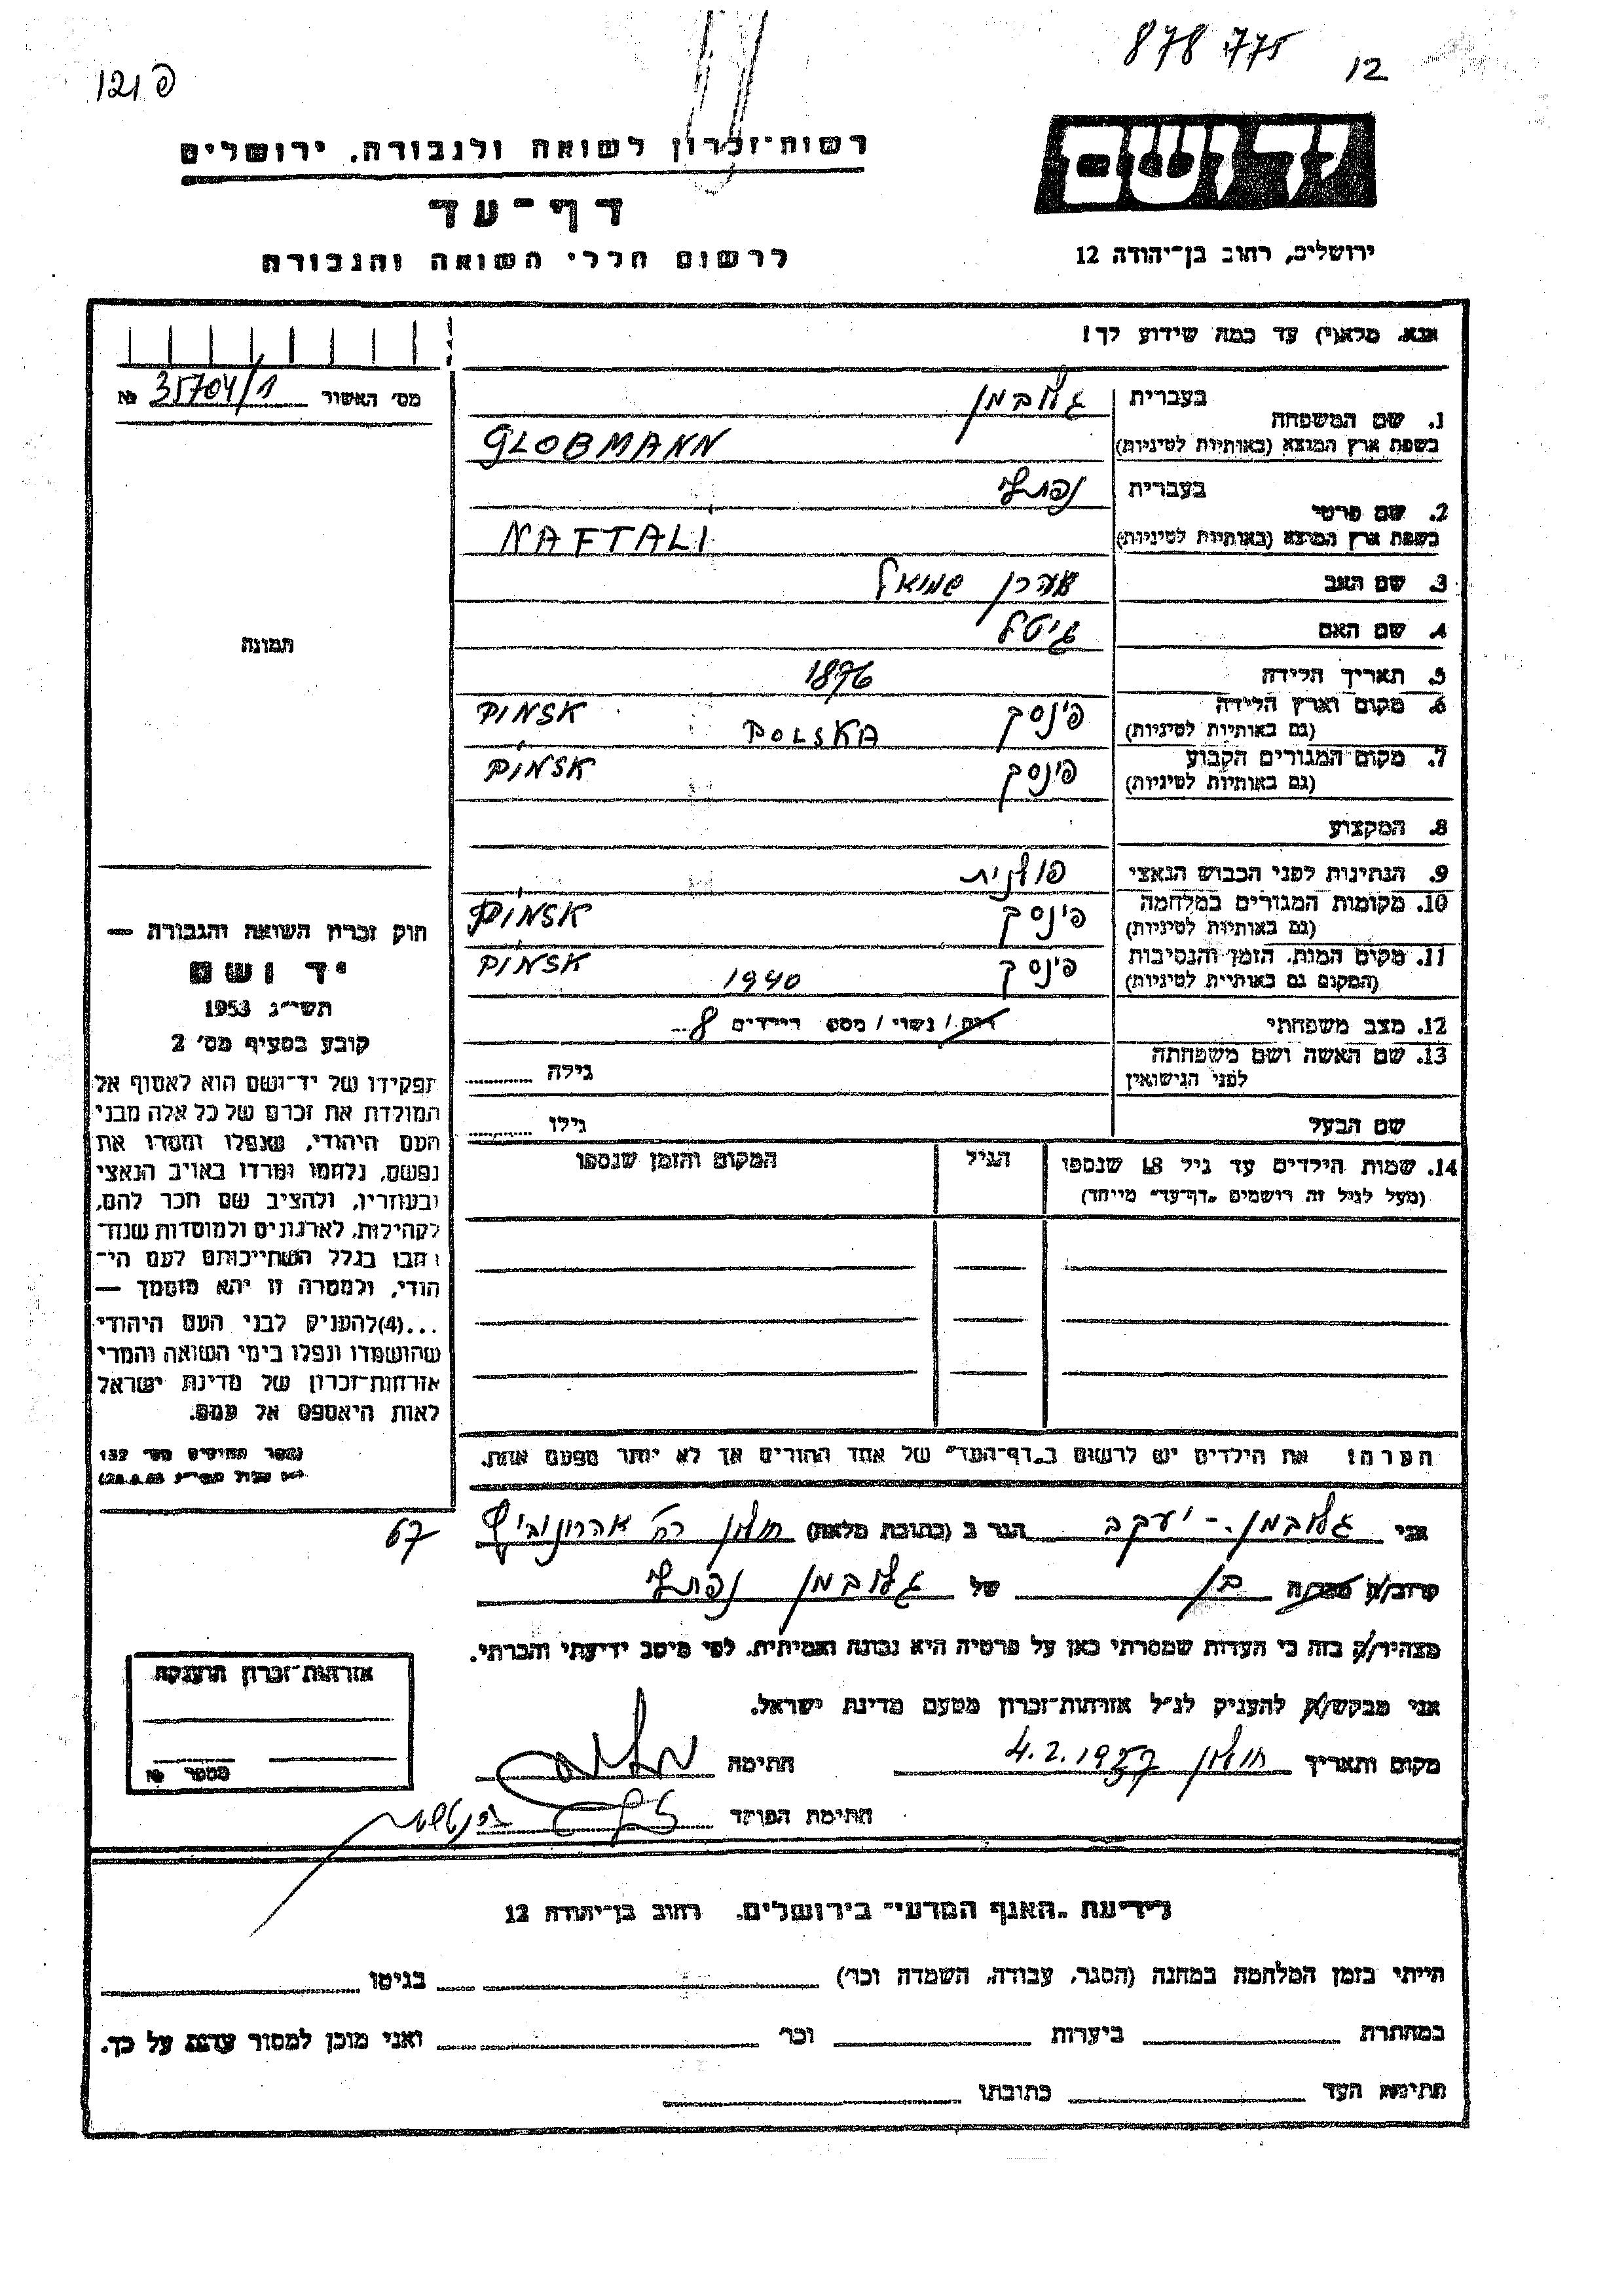 878 775
12
121 פ
יד ושם
ירושלים, רחוב בן־יהודה 12
רשות־זכרון לשואה ולגבורה, ירושלים
דף־עד
לרשום חללי השואה והגבורה
אנא, מלא(י) עד כמה שידוע לך!
מס׳ האשור 35704/1 №
1. שם המשפחה
בעברית גלובמן
בשפת ארץ המוצא (באותיות לטיניות) GLOBMANN
2. שם פרטי
בעברית נפתלי
בשפת ארץ המוצא (באותיות לטיניות) NAFTALI
3. שם האב אהרן שמואל
4. שם האם גיטל
5. תאריך הלידה 1876
6. מקום וארץ הלידה
(גם באותיות לטיניות) פינסק POLSKA PINSK
7. מקום המגורים הקבוע
(גם באותיות לטיניות) פינסק PINSK
8. המקצוע
9. הנתינות לפני הכבוש הנאצי פולנית
10. מקומות המגורים במלחמה
(גם באותיות לטיניות) פינסק PINSK
11. מקום המות, הזמן והנסיבות
(המקום גם באותיות לטיניות) פינסק 1940 PINSK
12. מצב משפחתי רווק / נשוי / מספר הילדים 8
13. שם האשה ושם משפחתה
לפני הנישואין גילה
שם הבעל גילו
14. שמות הילדים עד גיל 18 שנספו הגיל המקום והזמן שנספו
(מעל לגיל זה רושמים „דף־עד״ מיוחד)
הערה: את הילדים יש לרשום ב„דף־העד״ של אחד ההורים אך לא יותר מפעם אחת.
תמונה
חוק זכרון השואה והגבורה —
יד ושם
תשי״ג 1953
קובע בסעיף מס׳ 2
תפקידו של יד־ושם הוא לאסוף אל
המולדת את זכרם של כל אלה מבני
העם היהודי, שנפלו ומסרו את
נפשם, נלחמו ומרדו באויב הנאצי
ובעוזריו, ולהציב שם וזכר להם,
לקהילות, לארגונים ולמוסדות שנח־
רבו בגלל השתייכותם לעם הי־
הודי, ולמטרה זו יהא מוסמך —
...(4)להעניק לבני העם היהודי
שהושמדו ונפלו בימי השואה והמרי
אזרחות־זכרון של מדינת ישראל
לאות היאספם אל עמם.
אני גלובמן - יעקב הגר ב (כתובת מלאה) חולון רח׳ אהרונוביץ 67
קרוב/ה מכר/ה בן של גלובמן נפתלי
מצהיר/ה בזה כי העדות שמסרתי כאן על פרטיה היא נכונה ואמיתית, לפי מיטב ידיעתי והכרתי.
אני מבקש/ת להעניק לנ״ל אזרחות־זכרון מטעם מדינת ישראל.
מקום ותאריך חולון 4.2.1957 חתימה
חתימת הפוקד
אזרחות־זכרון הוענקה
מספר №
לידיעת „האגף המדעי״ בירושלים, רחוב בן־יהודה 12
הייתי בזמן המלחמה במחנה (הסגר, עבודה, השמדה וכו׳) בגיטו
במחתרת ביערות וכו׳ ואני מוכן למסור עדות על כך.
חתימת העד כתובתו